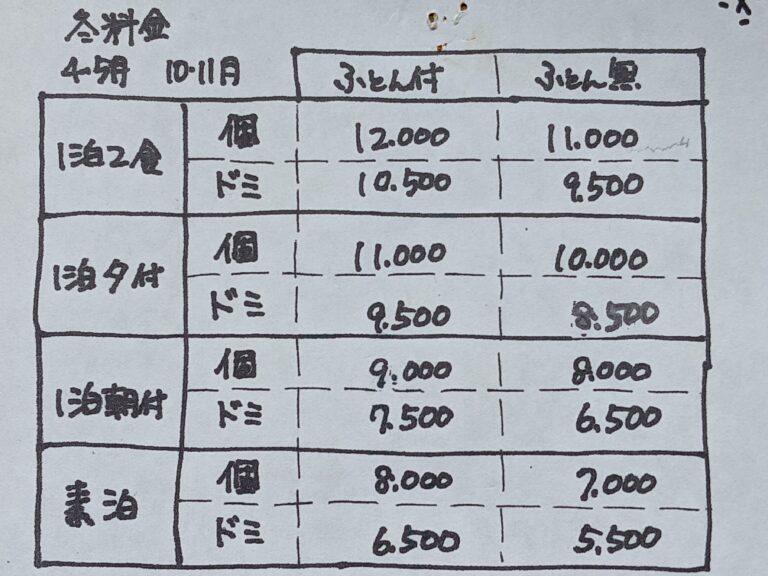 冬料金
4・5月 10・11月 ふとん付 ふとん無
1泊2食 個 12.000 11.000
ドミ 10.500 9.500
1泊夕付 個 11.000 10.000
ドミ 9.500 8.500
1泊朝付 個 9.000 8.000
ドミ 7.500 6.500
素泊 個 8.000 7.000
ドミ 6.500 5.500